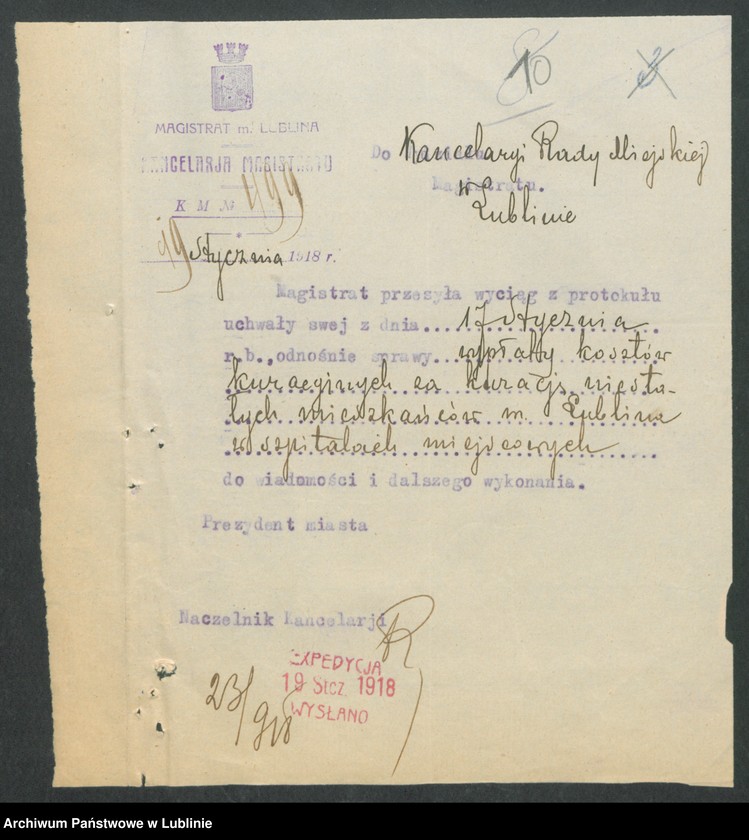 10
3
MAGISTRAT m. LUBLINA
KANCELARJA MAGISTRATU
K M № 499
19 stycznia 1918 r.
Do Kancelaryi Rady Miejskiej
Magistratu.
w Lublinie
Magistrat przesyła wyciąg z protokułu
uchwały swej z dnia... 17 stycznia
r.b., odnośnie sprawy wypłaty kosztów
kuracyjnych za kurację niesta-
łych mieszkańców m. Lublina
w szpitalach miejscowych
do wiadomości i dalszego wykonania.
Prezydent miasta
Naczelnik Kancelarji
EXPEDYCJA
19 Stcz. 1918
WYSŁANO
23/
Archiwum Państwowe w Lublinie